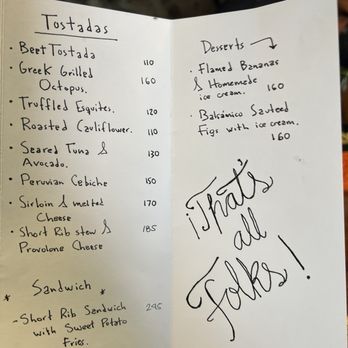 Tostadas
· Beet Tostada 110
· Greek Grilled
Octopus. 160
· Truffled Esquites. 120
· Roasted Cauliflower. 110
· Seared Tuna &
Avocado. 130
· Peruvian Cebiche 150
· Sirloin & melted 170
Cheese
· Short Rib stew & 185
Provolone Cheese
* Sandwich *
- Short Rib Sandwich 245
with Sweet Potato
Fries.
Desserts
· Flamed Bananas
& Homemade
ice cream. 160
· Balsámico Sauteed
Figs with ice cream.
160
¡That's
all
Folks!